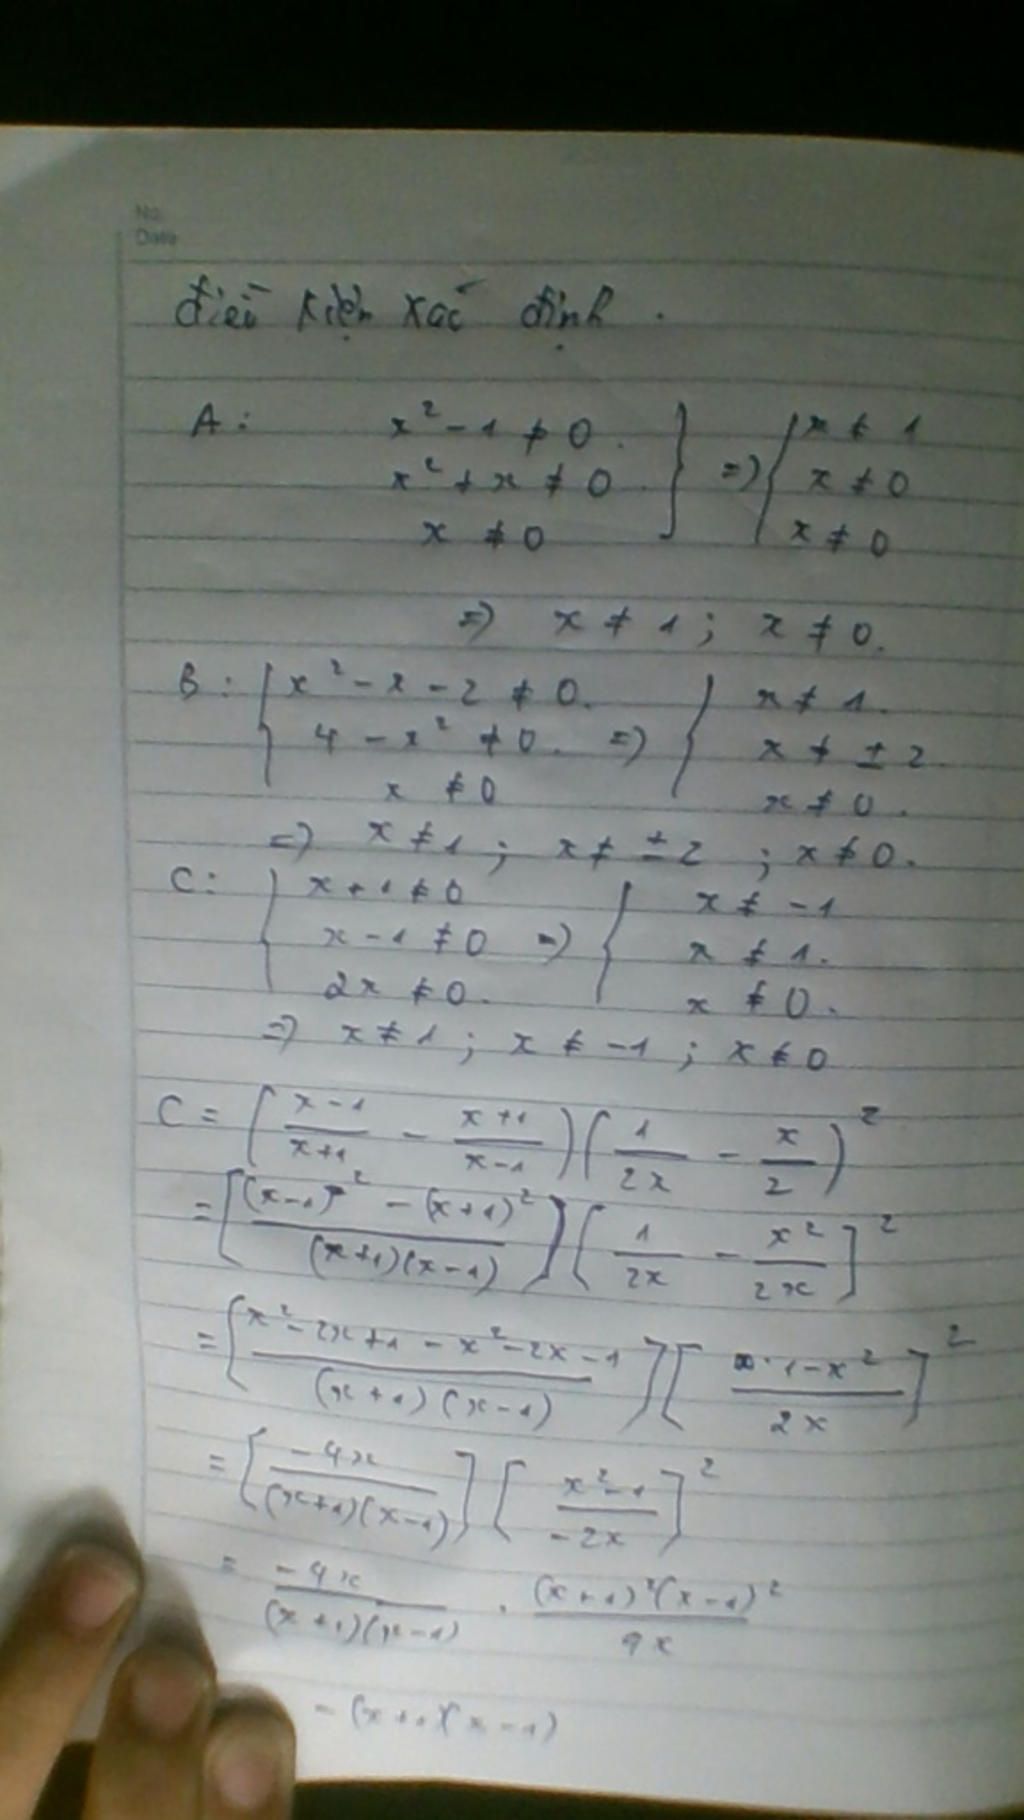 No.
Date
điều kiện xác định.
A: x² - 1 ≠ 0. x² + x ≠ 0 x ≠ 0 } => { x ≠ 1 x ≠ 0 x ≠ 0
=> x ≠ 1 ; x ≠ 0.
B: { x² - x - 2 ≠ 0. 4 - x² ≠ 0. x ≠ 0 => { x ≠ 1. x ≠ ± 2 x ≠ 0.
=> x ≠ 1 ; x ≠ ± 2 ; x ≠ 0.
C: { x + 1 ≠ 0 x - 1 ≠ 0 2x ≠ 0. => { x ≠ -1 x ≠ 1. x ≠ 0.
=> x ≠ 1 ; x ≠ -1 ; x ≠ 0
C = ( (x-1)/(x+1) - (x+1)/(x-1) ) ( 1/(2x) - x/2 )²
= [ ((x-1)² - (x+1)²)/((x+1)(x-1)) ] [ 1/(2x) - x²/(2x) ]²
= [ (x² - 2x + 1 - x² - 2x - 1)/((x+1)(x-1)) ] [ (1 - x²)/(2x) ]²
= [ (-4x)/((x+1)(x-1)) ] [ (x² - 1)/(-2x) ]²
= (-4x)/((x+1)(x-1)) . ((x+1)²(x-1)²)/(4x)
- (x+1)(x-1)